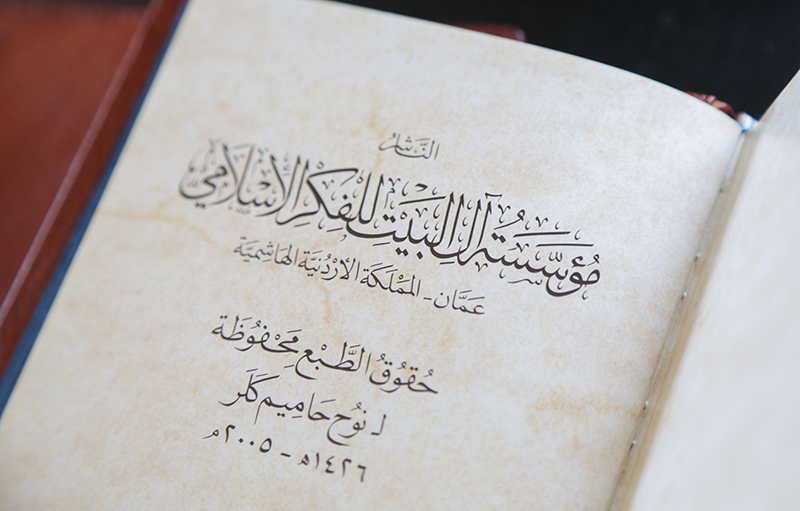 النَّاشِرُ
مُؤَسَّسَةُ آلِ البَيْتِ لِلْفِكْرِ الإِسْلَامِيِّ
عَمَّان - المَمْلَكَة الأُرْدُنِيَّة الهَاشِمِيَّة
حُقُوقُ الطَّبْعِ مَحْفُوظَة
لـ نُوح حَامِيم كَلَر
١٤٢٦هـ - ٢٠٠٥م